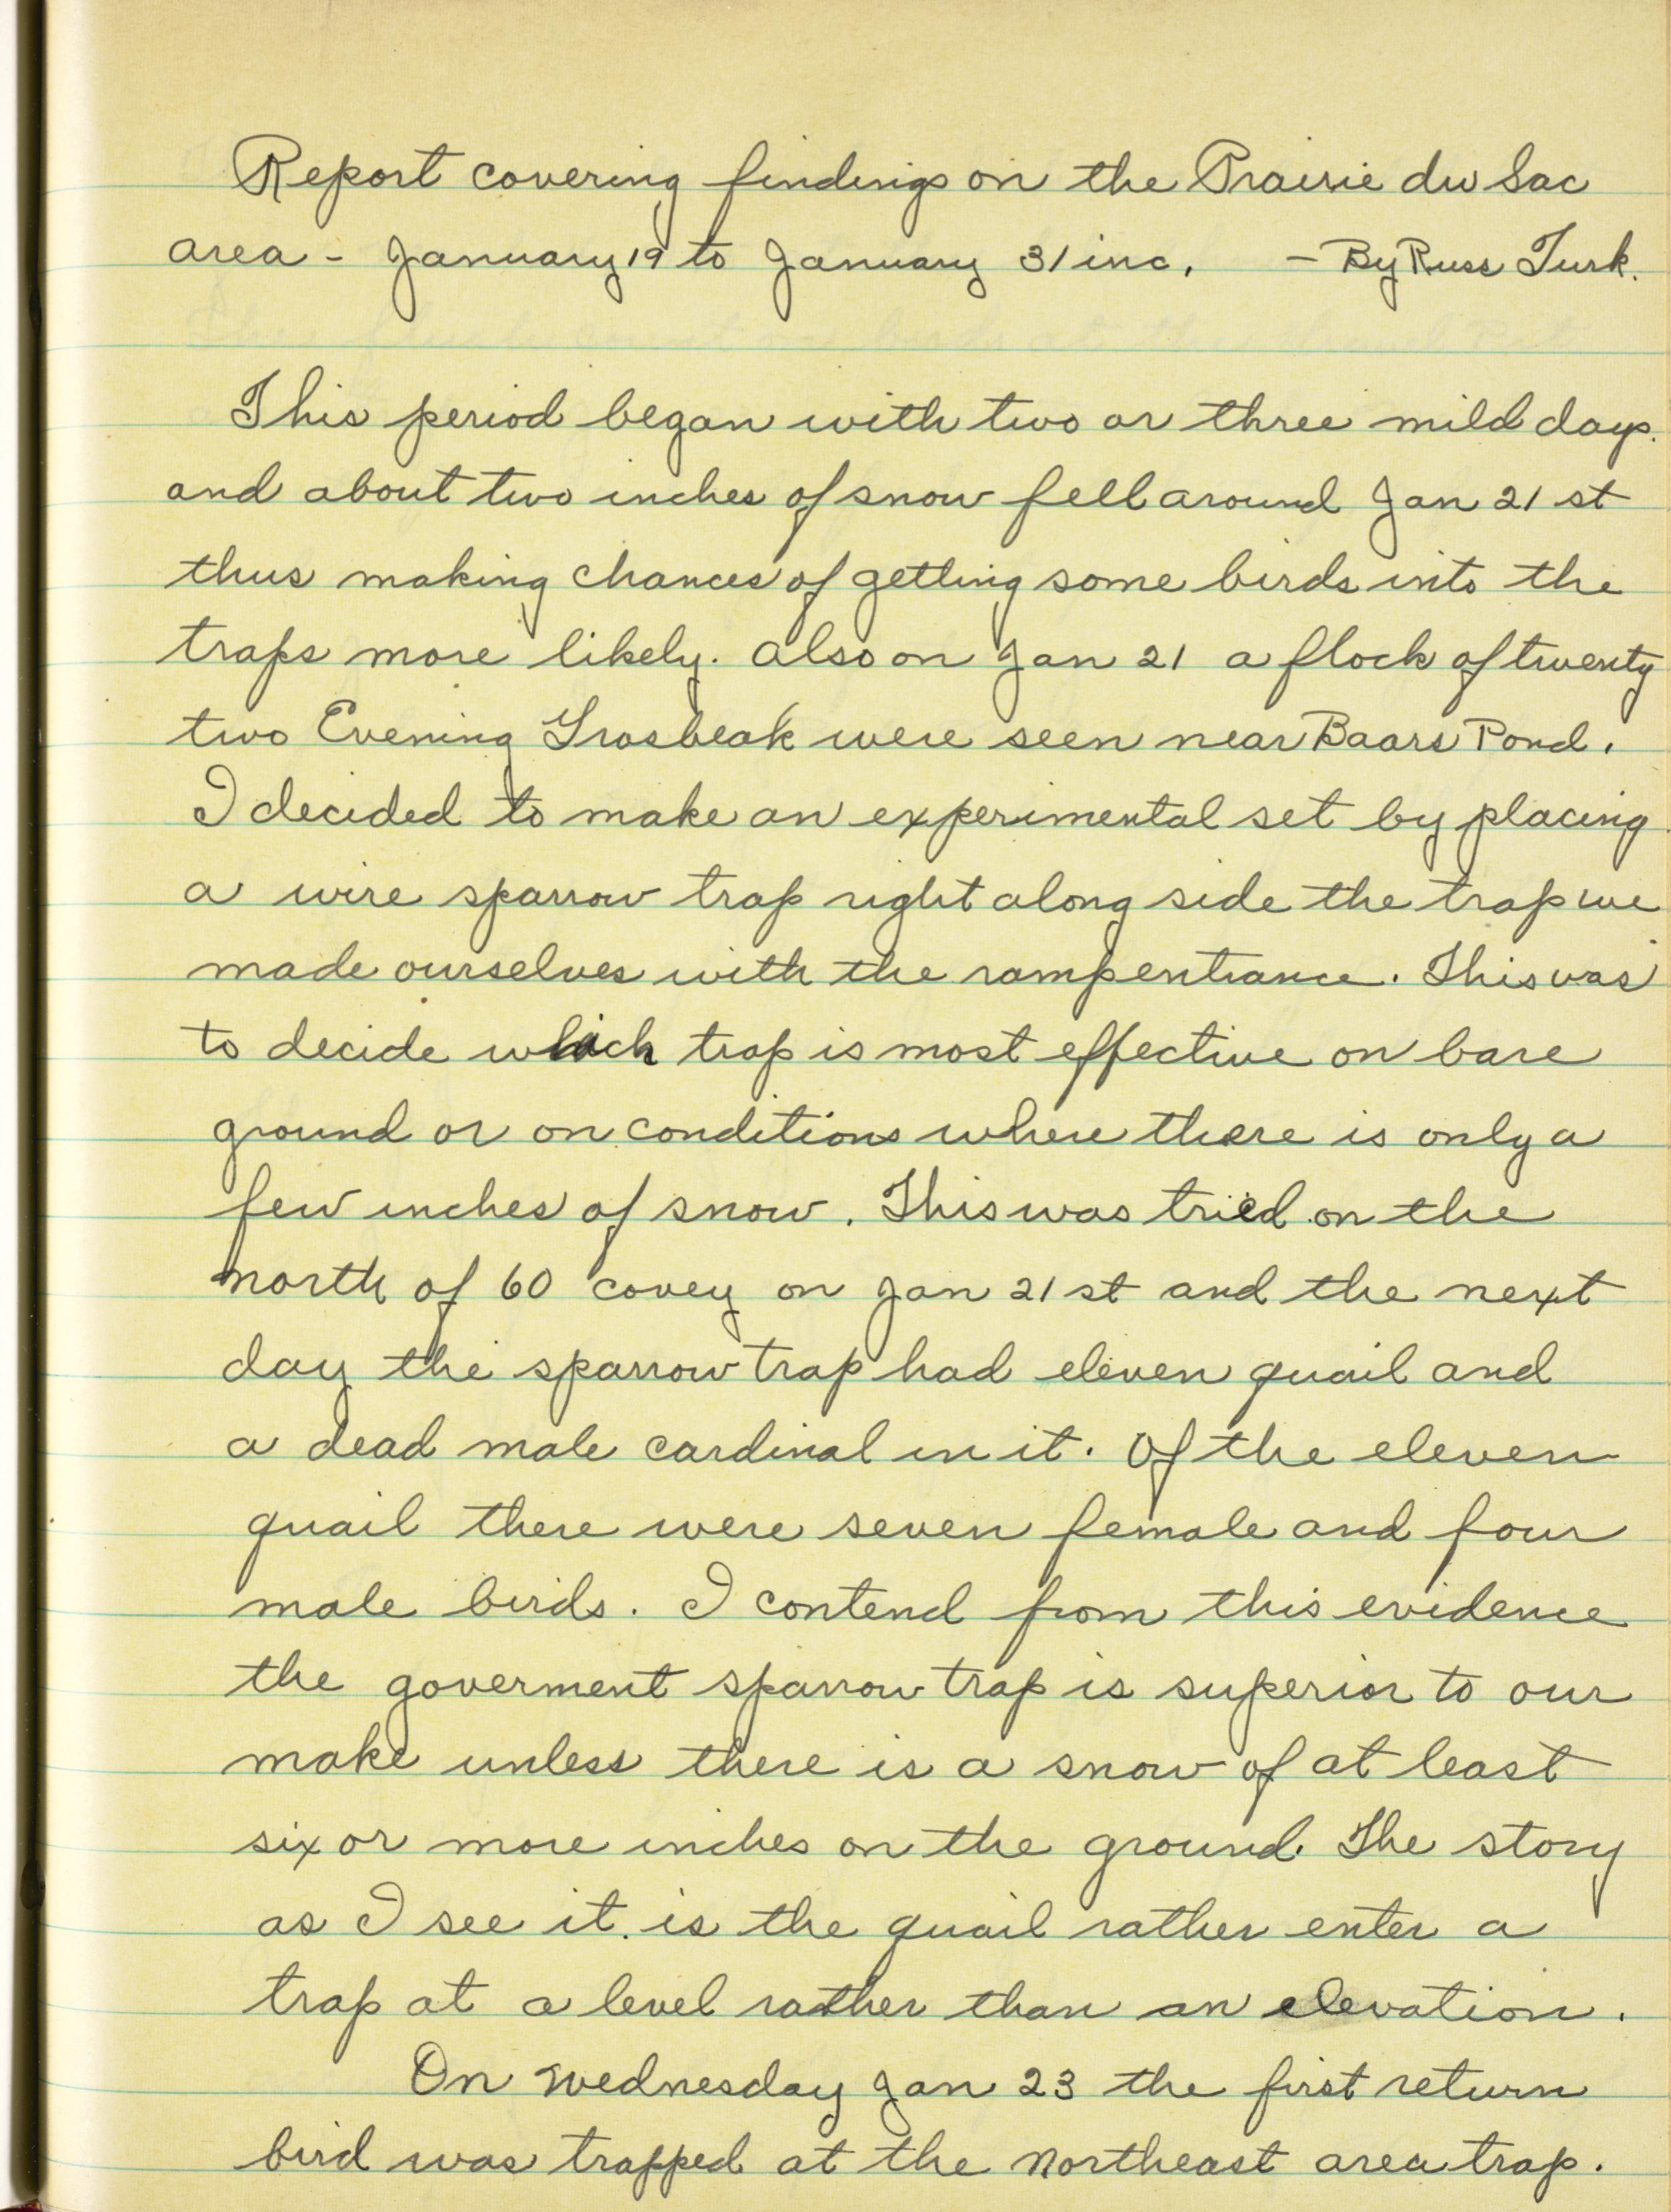 Report covering findings on the Prairie du Sac
area - January 19 to January 31 inc. - By Russ Turk.
This period began with two or three mild days.
and about two inches of snow fell around Jan 21 st
thus making chances of getting some birds into the
traps more likely. Also on Jan 21 a flock of twenty
two Evening Grosbeak were seen near Baars Pond.
I decided to make an experimental set by placing
a wire sparrow trap right along side the trap we
made ourselves with the ramp entrance. This was
to decide which trap is most effective on bare
ground or on conditions where there is only a
few inches of snow. This was tried on the
north of 60 covey on Jan 21 st and the next
day the sparrow trap had eleven quail and
a dead male cardinal in it. Of the eleven
quail there were seven female and four
male birds. I contend from this evidence
the goverment sparrow trap is superior to our
make unless there is a snow of at least
six or more inches on the ground. The story
as I see it. is the quail rather enter a
trap at a level rather than an elevation.
On Wednesday Jan 23 the first return
bird was trapped at the Northeast area trap.